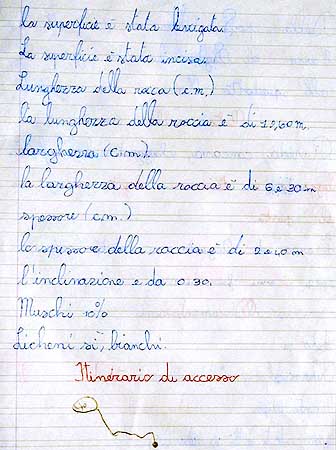 la superficie è stata levigata.
La superficie è stata incisa.
Lunghezza della roca (c.m.)
la lunghezza della roccia è di 12,60 m
larghezza (c.m.)
la larghezza della roccia è di 6 e 30 m
spessore (c.m.)
lo spessore della roccia è di 2 e 40 m
l'inclinazione e da 0.30.
Muschi 10%
Licheni sì, bianchi.
Itinerario di accesso